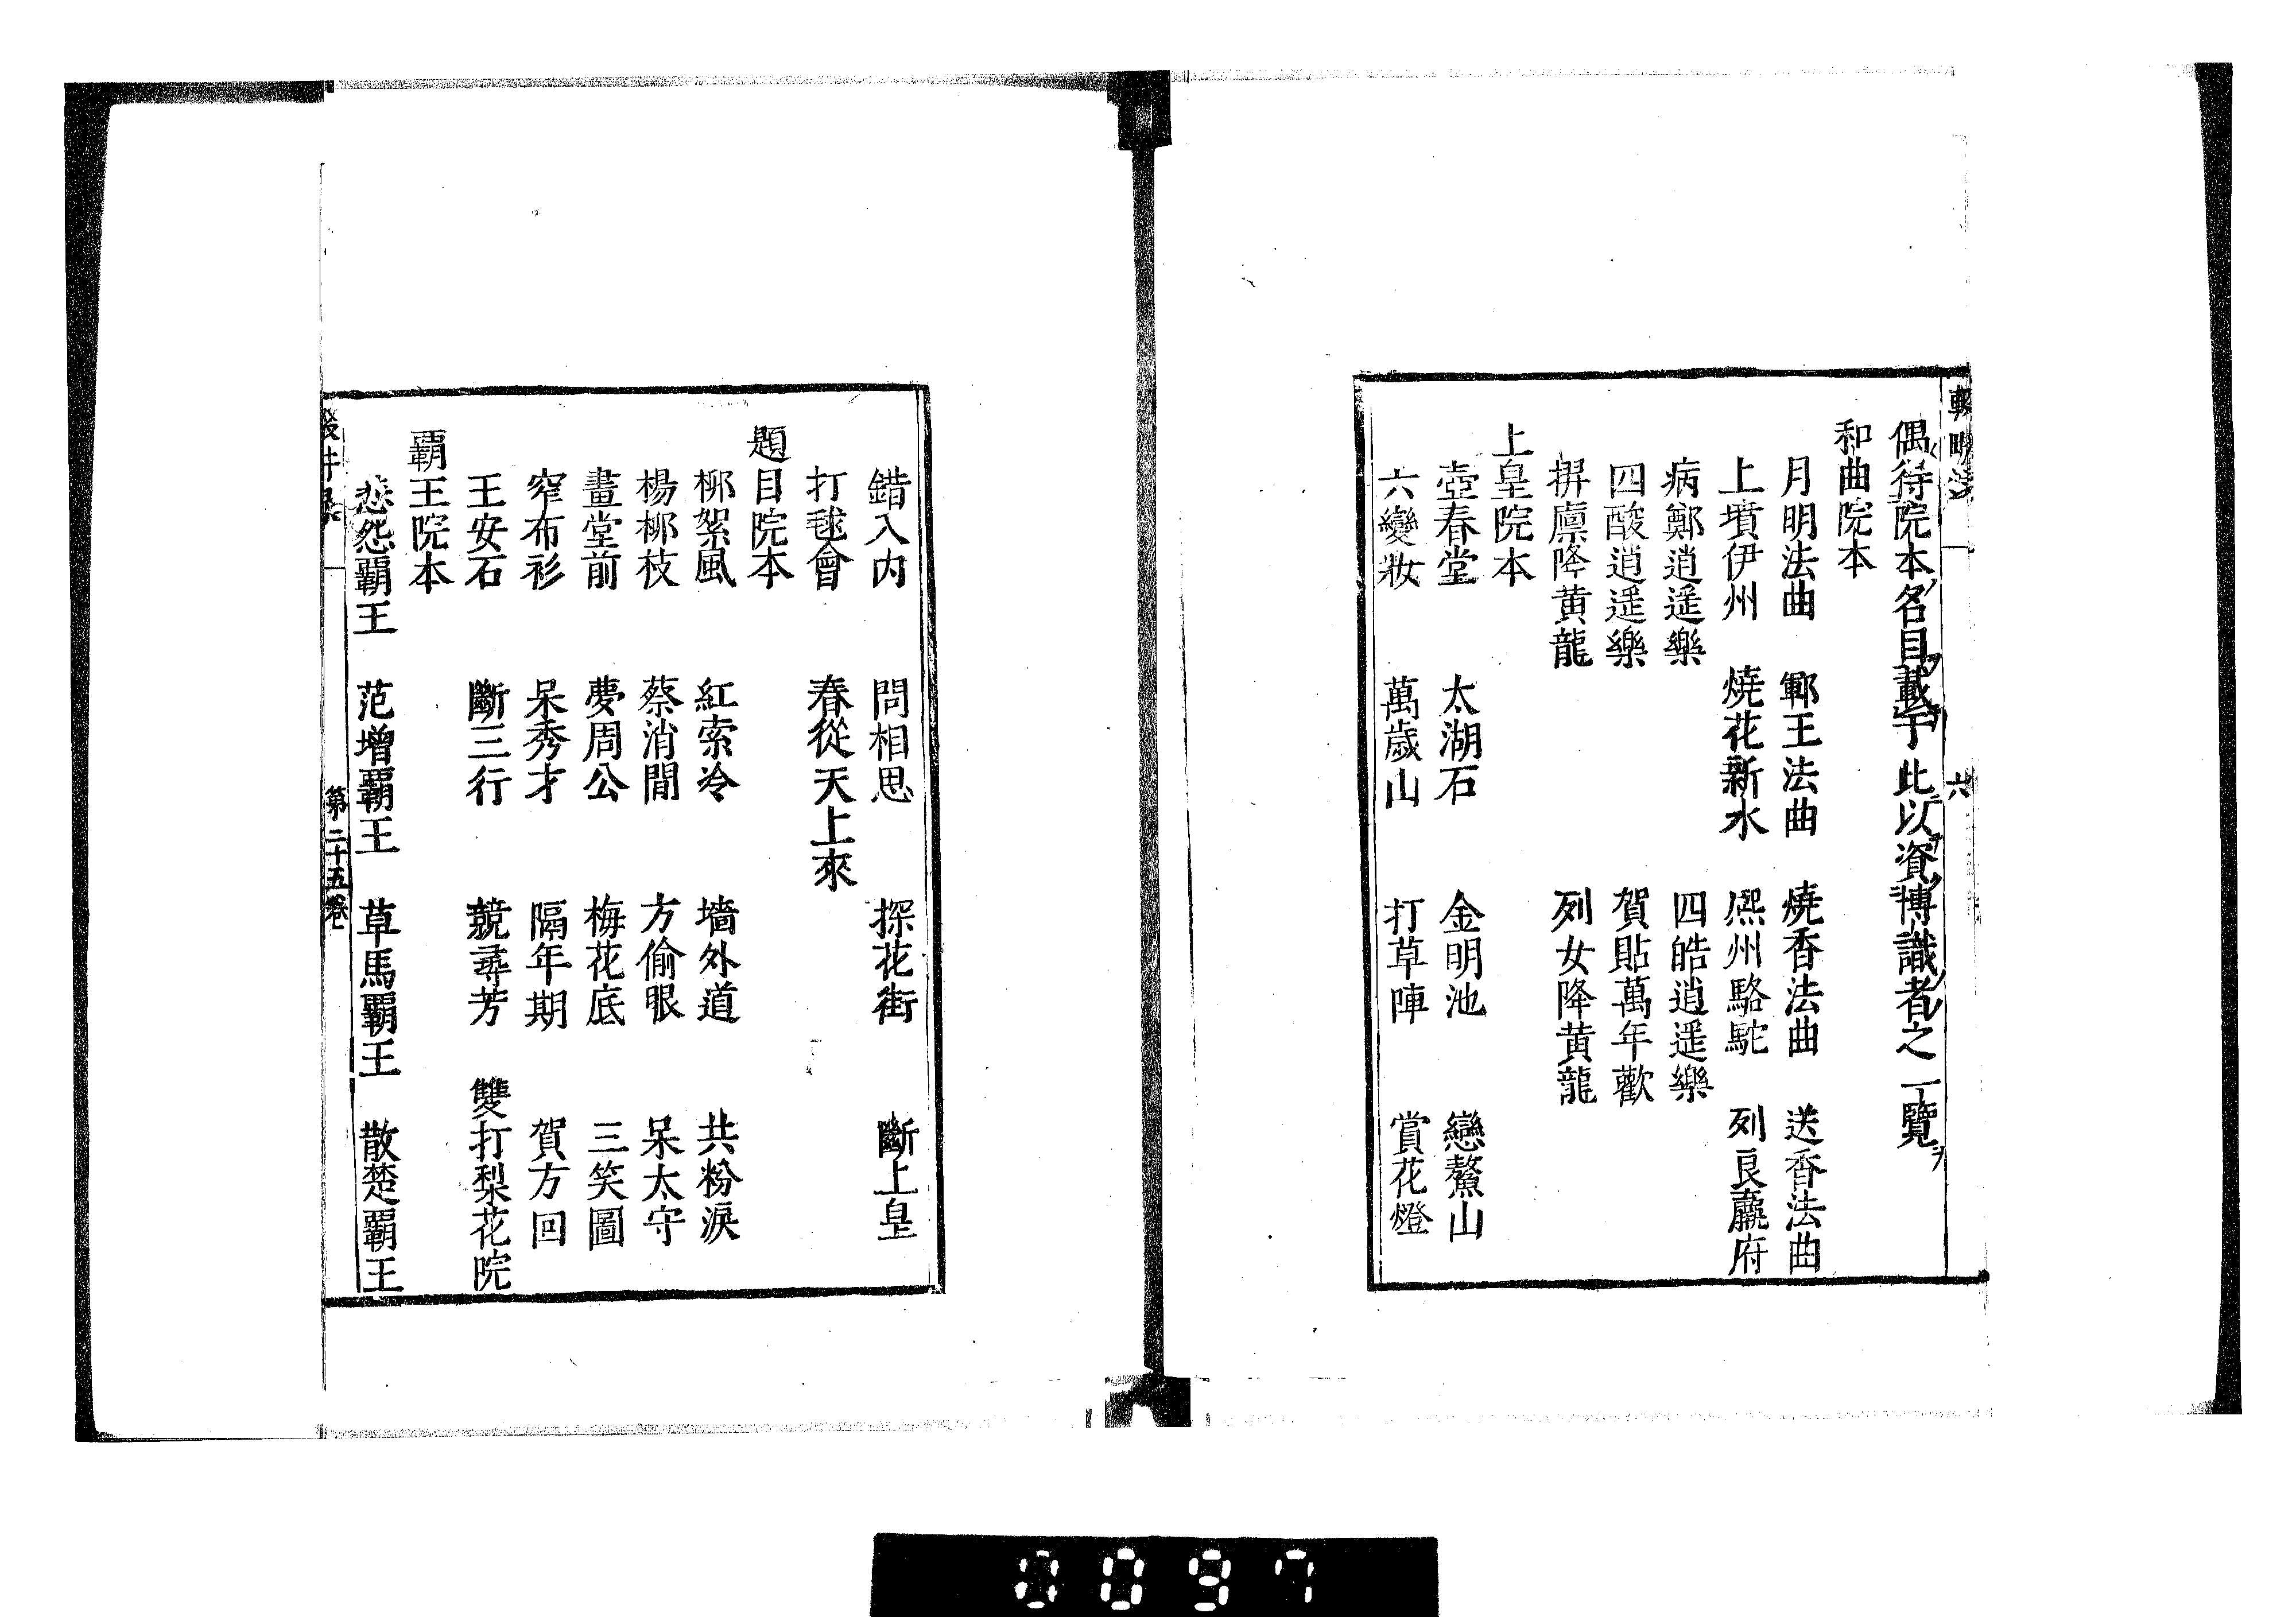 六
偶得院本名目載于此以資博識者之一覽
和曲院本
月明法曲 鄆王法曲 燒香法曲 送香法曲
上墳伊州 燒花新水 熈州駱駝 列良羸府
病鄭逍遥樂 四皓逍遥樂
四酸逍遥樂 賀貼萬年歡
搟廪降黄龍 列女降黄龍
上皇院本
壺春堂 太湖石 金明池 戀鰲山
六變妝 萬歲山 打草陣 賞花燈
錯入内 問相思 探花街 斷上皇
打毬會 春從天上來
題目院本
柳絮風 紅索冷 墻外道 共粉淚
楊柳枝 蔡消閒 方偷眼 呆太守
畫堂前 夢周公 梅花底 三笑圖
窄布衫 呆秀才 隔年期 賀方回
王安石 斷三行 競尋芳 雙打梨花院
覇王院本
悲怨覇王 范增覇王 草馬覇王 散楚覇王
第二十五卷
0097